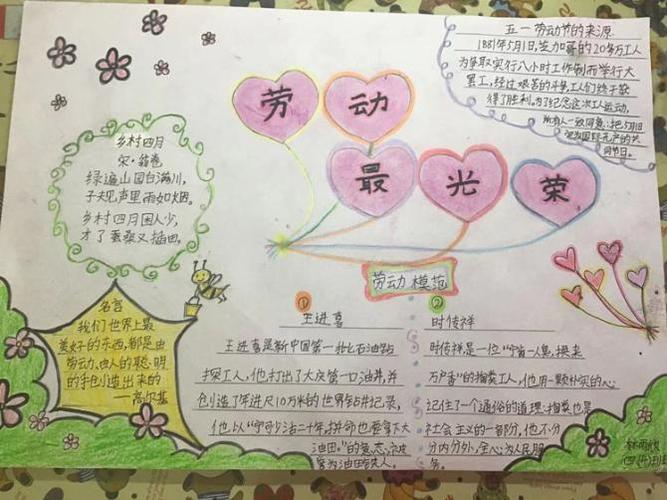 劳动
最光荣
五一劳动节的来源
1881年5月1日,芝加哥的20多万工人
为争取实行八小时工作制而举行大
罢工,经过艰苦的斗争,工人们终于获
得了胜利。为了纪念这次工人运动,
所有人一致同意:把5月1日
定为国际无产的共
同节日。
乡村四月
宋·翁卷
绿遍山园白满川,
子规声里雨如烟。
乡村四月困人少,
才了蚕桑又插田。
名言
我们世界上最
美好的东西,都是由
劳动、由人的聪明
的手创造出来的
——高尔基
劳动模范
①
王进喜
王进喜是新中国第一批石油钻
探工人,他打出了大庆第一口油井,并
创造了年进尺10万米的世界钻井记录,
他以“宁可少活二十年,拼命也要拿下大
油田。”的意志
为油田铁人。
②
时传祥
时传祥是一位“宁脏一人臭,换来
万户香”的掏粪工人,他用一颗朴实的心
记住了一个通俗的道理:掏粪也是
社会主义的一部分,他不分
分内分外,全心为人民服
务。